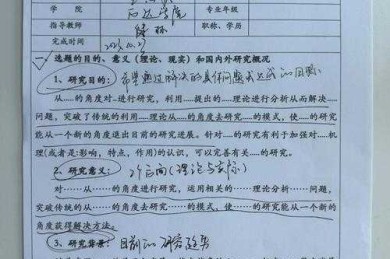 学 院
专业年级
指导教师
职称、学历
完成时间
一、选题的目的、意义（理论、现实）和国内外研究概况
1、研究目的：希望通过解决的具体问题或达成的目标
从……的角度对..进行研究，利用……提出的……理论进行分析从而解决……
问题，突破了传统的利用……从……的角度去研究……的模式，使……的研究能
从一个新的角度退出目前的研究进展。针对…的研究有利于加强对……机
理(或者是:影响，特点，作用)的认识，可以完善有关……的研究。
2、研究意义：2个层面（理论与实际）
对……从……的角度进行研究，运用相关的……理论分析……问题，
突破传统的从……的角度去研究……的模式，使……的研究能从一个新的
角度获得解决方法。
3、研究背景：目前的研究趋势